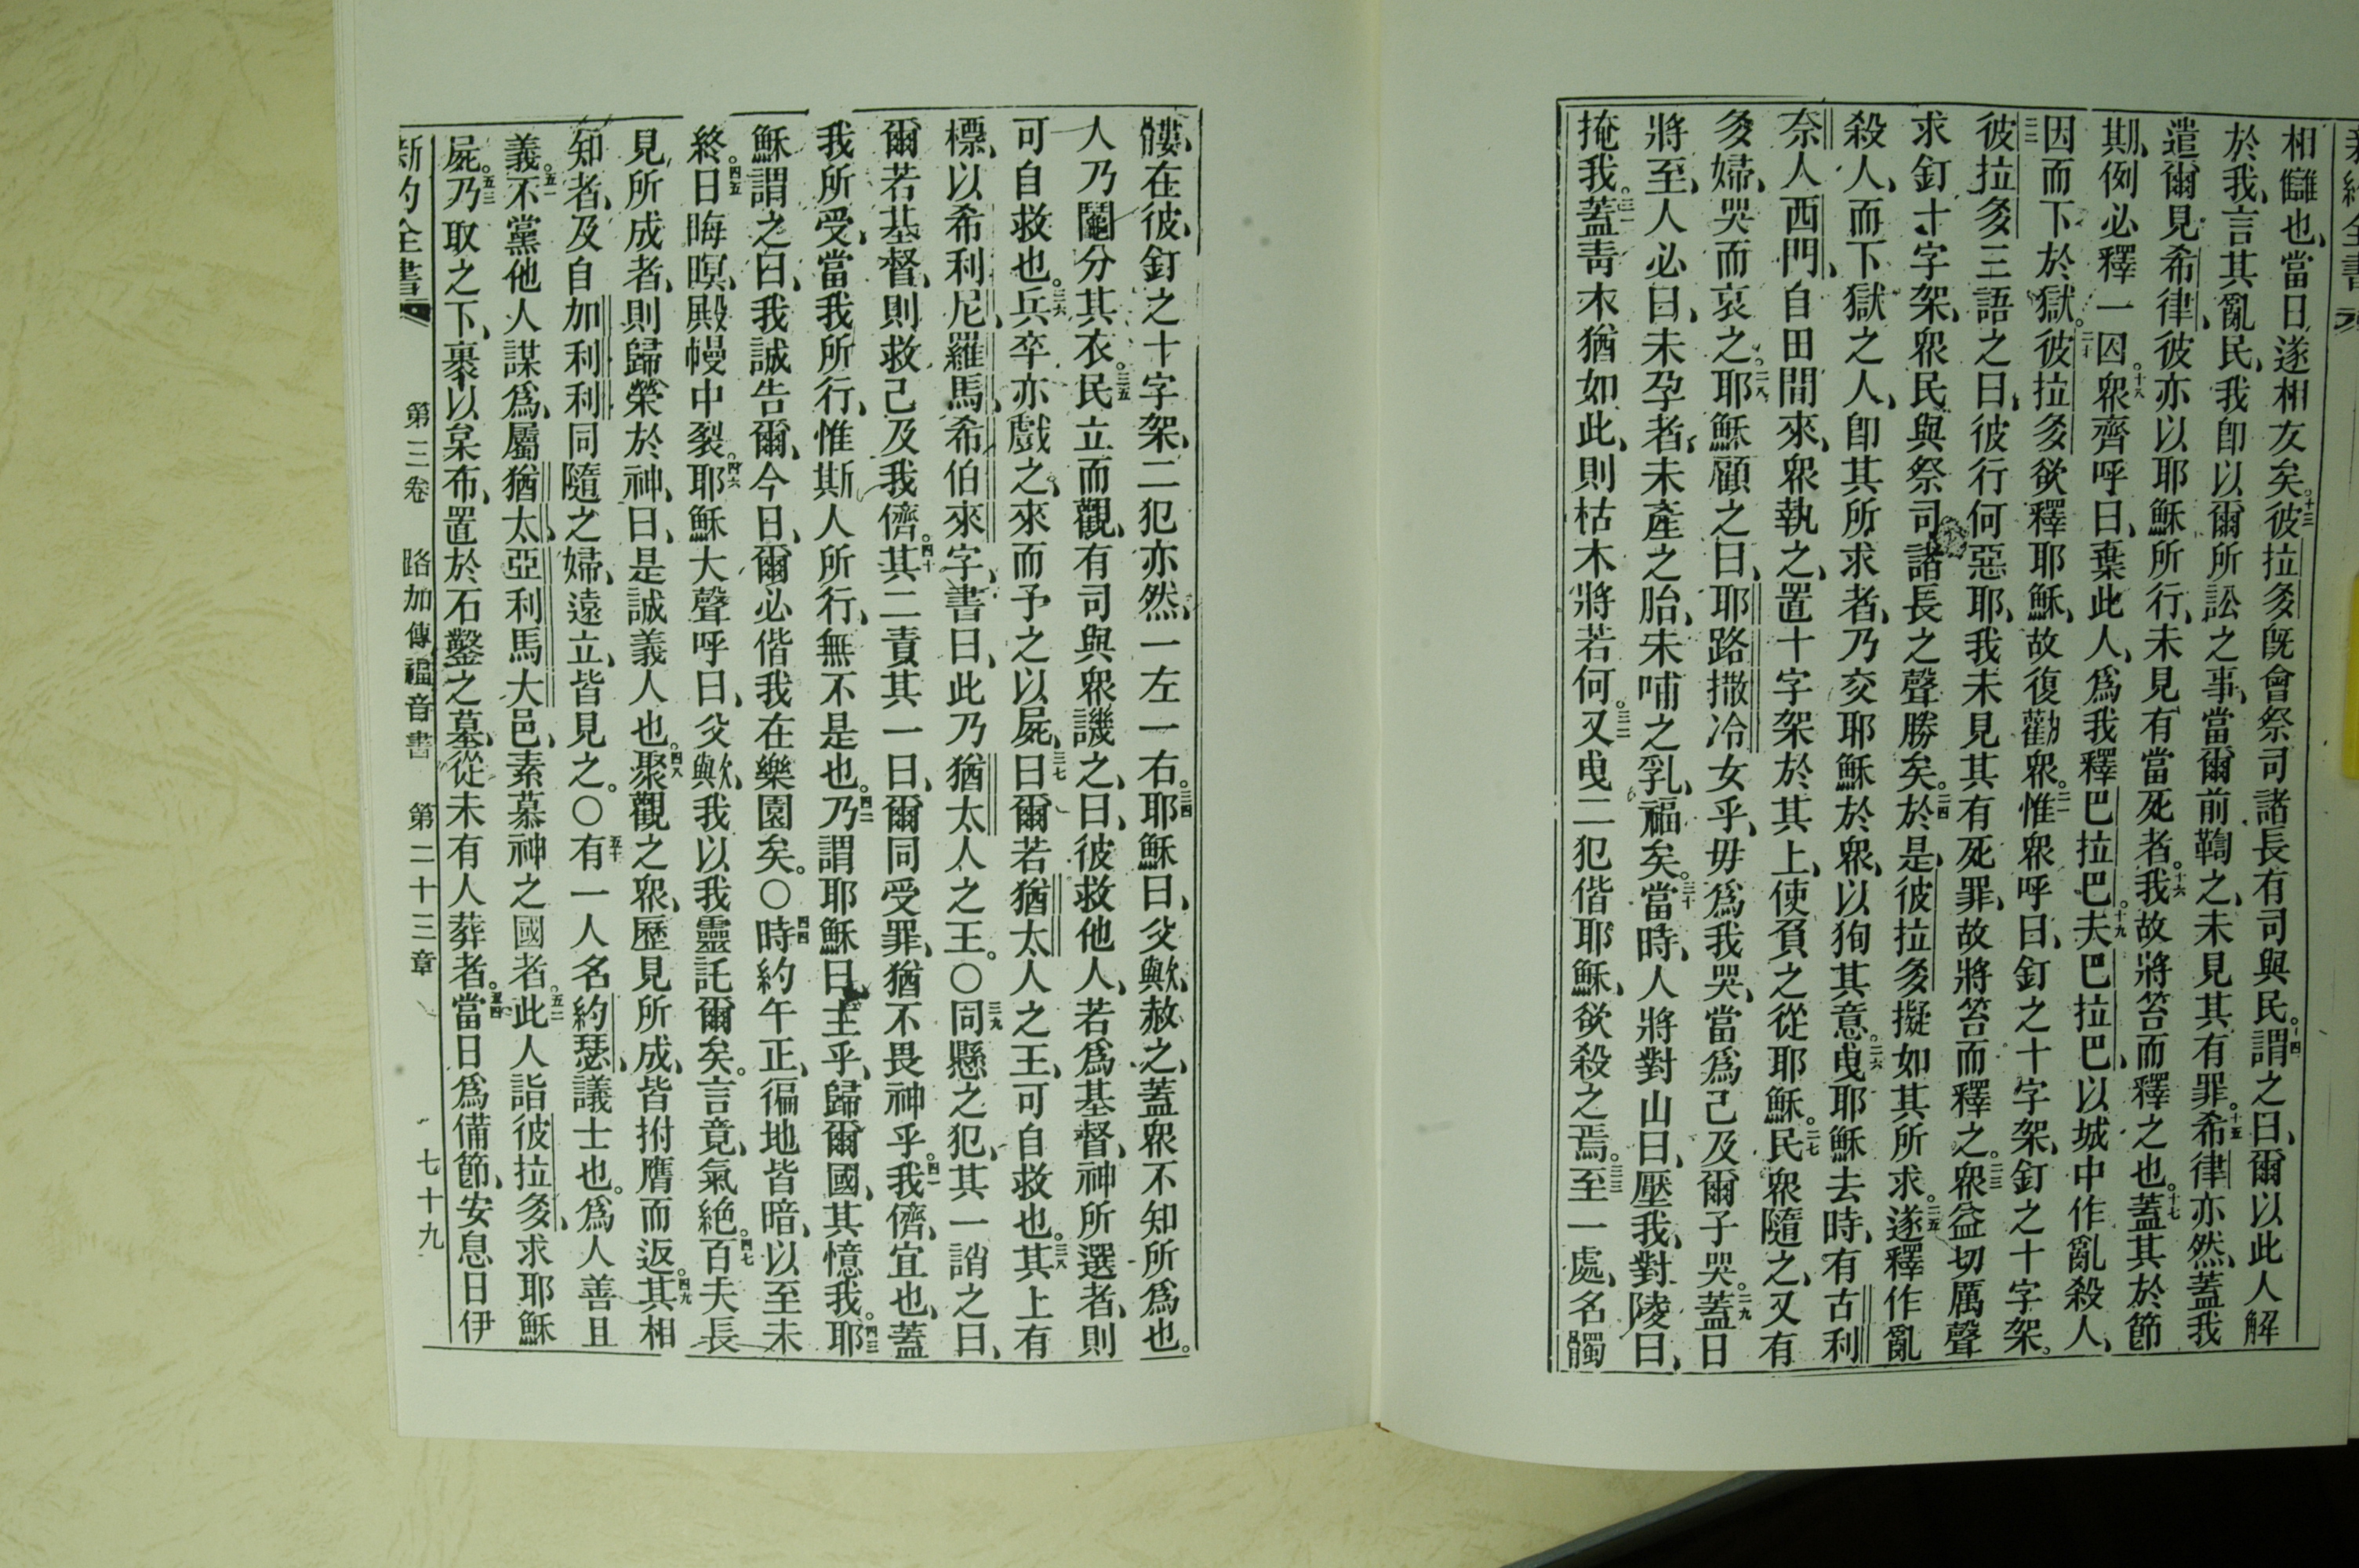 新約全書
相讎也、當日遂相友矣。十三彼拉多旣會祭司諸長有司與民。十四謂之曰、爾以此人解
於我、言其亂民、我卽以爾所訟之事、當爾前鞫之、未見其有罪。十五希律亦然、蓋我
遣爾見希律、彼亦以耶穌所行、未見有當死者。十六我故將笞而釋之也。十七蓋其於節
期、例必釋一囚。十八衆齊呼曰、棄此人、爲我釋巴拉巴。十九夫巴拉巴、以城中作亂殺人、
因而下於獄。二十彼拉多欲釋耶穌、故復勸衆。二一惟衆呼曰、釘之十字架、釘之十字架。
二二彼拉多三語之曰、彼行何惡耶、我未見其有死罪、故將笞而釋之。二三衆益切厲聲
求釘十字架、衆民與祭司諸長之聲勝矣。二四於是、彼拉多擬如其所求。二五遂釋作亂
殺人、而下獄之人、卽其所求者、乃交耶穌於衆、以狥其意。二六曳耶穌去時、有古利
奈人西門、自田間來、衆執之、置十字架於其上、使負之從耶穌。二七民衆隨之、又有
多婦、哭而哀之。二八耶穌顧之曰、耶路撒冷女乎、毋爲我哭、當爲己及爾子哭。二九蓋日
將至、人必曰、未孕者、未產之胎、未哺之乳、福矣。三十當時、人將對山曰、壓我、對陵曰、
掩我。三一蓋靑木猶如此、則枯木將若何。三二又曳二犯偕耶穌、欲殺之焉。三三至一處、名髑
髏、在彼、釘之十字架、二犯亦然、一左一右。三四耶穌曰、父歟、赦之、蓋衆不知所爲也。
人乃鬮分其衣。三五民立而觀、有司與衆譏之、曰、彼救他人、若爲基督、神所選者、則
可自救也。三六兵卒亦戲之、來而予之以醯、三七曰爾若猶太人之王、可自救也。三八其上有
標、以希利尼、羅馬、希伯來字、書曰、此乃猶太人之王。〇三九同懸之犯、其一誚之曰、
爾若基督、則救己及我儕。四十其二責其一曰、爾同受罪、猶不畏神乎。四一我儕、宜也、蓋
我所受、當我所行、惟斯人所行、無不是也。四二乃謂耶穌曰、主乎、歸爾國、其憶我。四三耶
穌謂之曰、我誠告爾、今日、爾必偕我在樂園矣。〇四四時約午正、徧地皆暗、以至未
終。四五日晦暝、殿幔中裂。四六耶穌大聲呼曰、父歟、我以我靈託爾矣。言竟、氣絶。四七百夫長
見所成者、則歸榮於神、曰、是誠義人也。四八聚觀之衆、歷見所成、皆拊膺而返。四九其相
知者、及自加利利同隨之婦、遠立、皆見之。〇五十有一人名約瑟、議士也。爲人善且
義。五一不黨他人謀爲、屬猶太、亞利馬大邑、素慕神之國者。五二此人詣彼拉多、求耶穌
屍。五三乃取之下、裹以枲布、置於石鑿之墓、從未有人葬者。五四當日爲備節、安息日伊
新約全書 第三卷 路加傳福音書 第二十三章 七十九